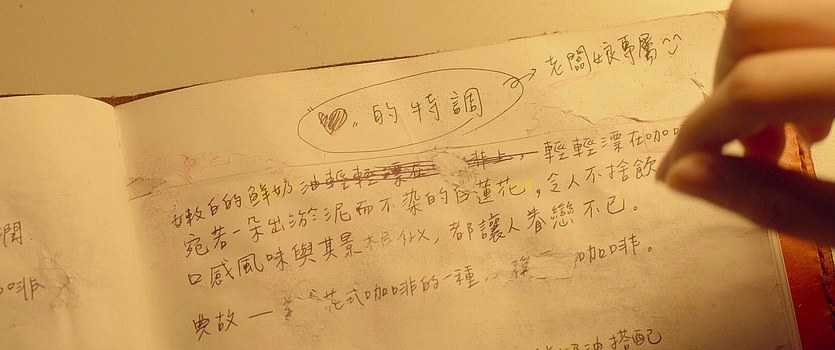 老闆娘專屬
"♥"的特調
嫩白的鮮奶油輕輕漂在咖啡上,輕輕漂在咖
宛若一朵出淤泥而不染的白蓮花,令人不捨飲
口感風味與其景相似,都讓人眷戀不已。
典故一 花式咖啡的一種, 咖啡。
油搭配
潤
啡